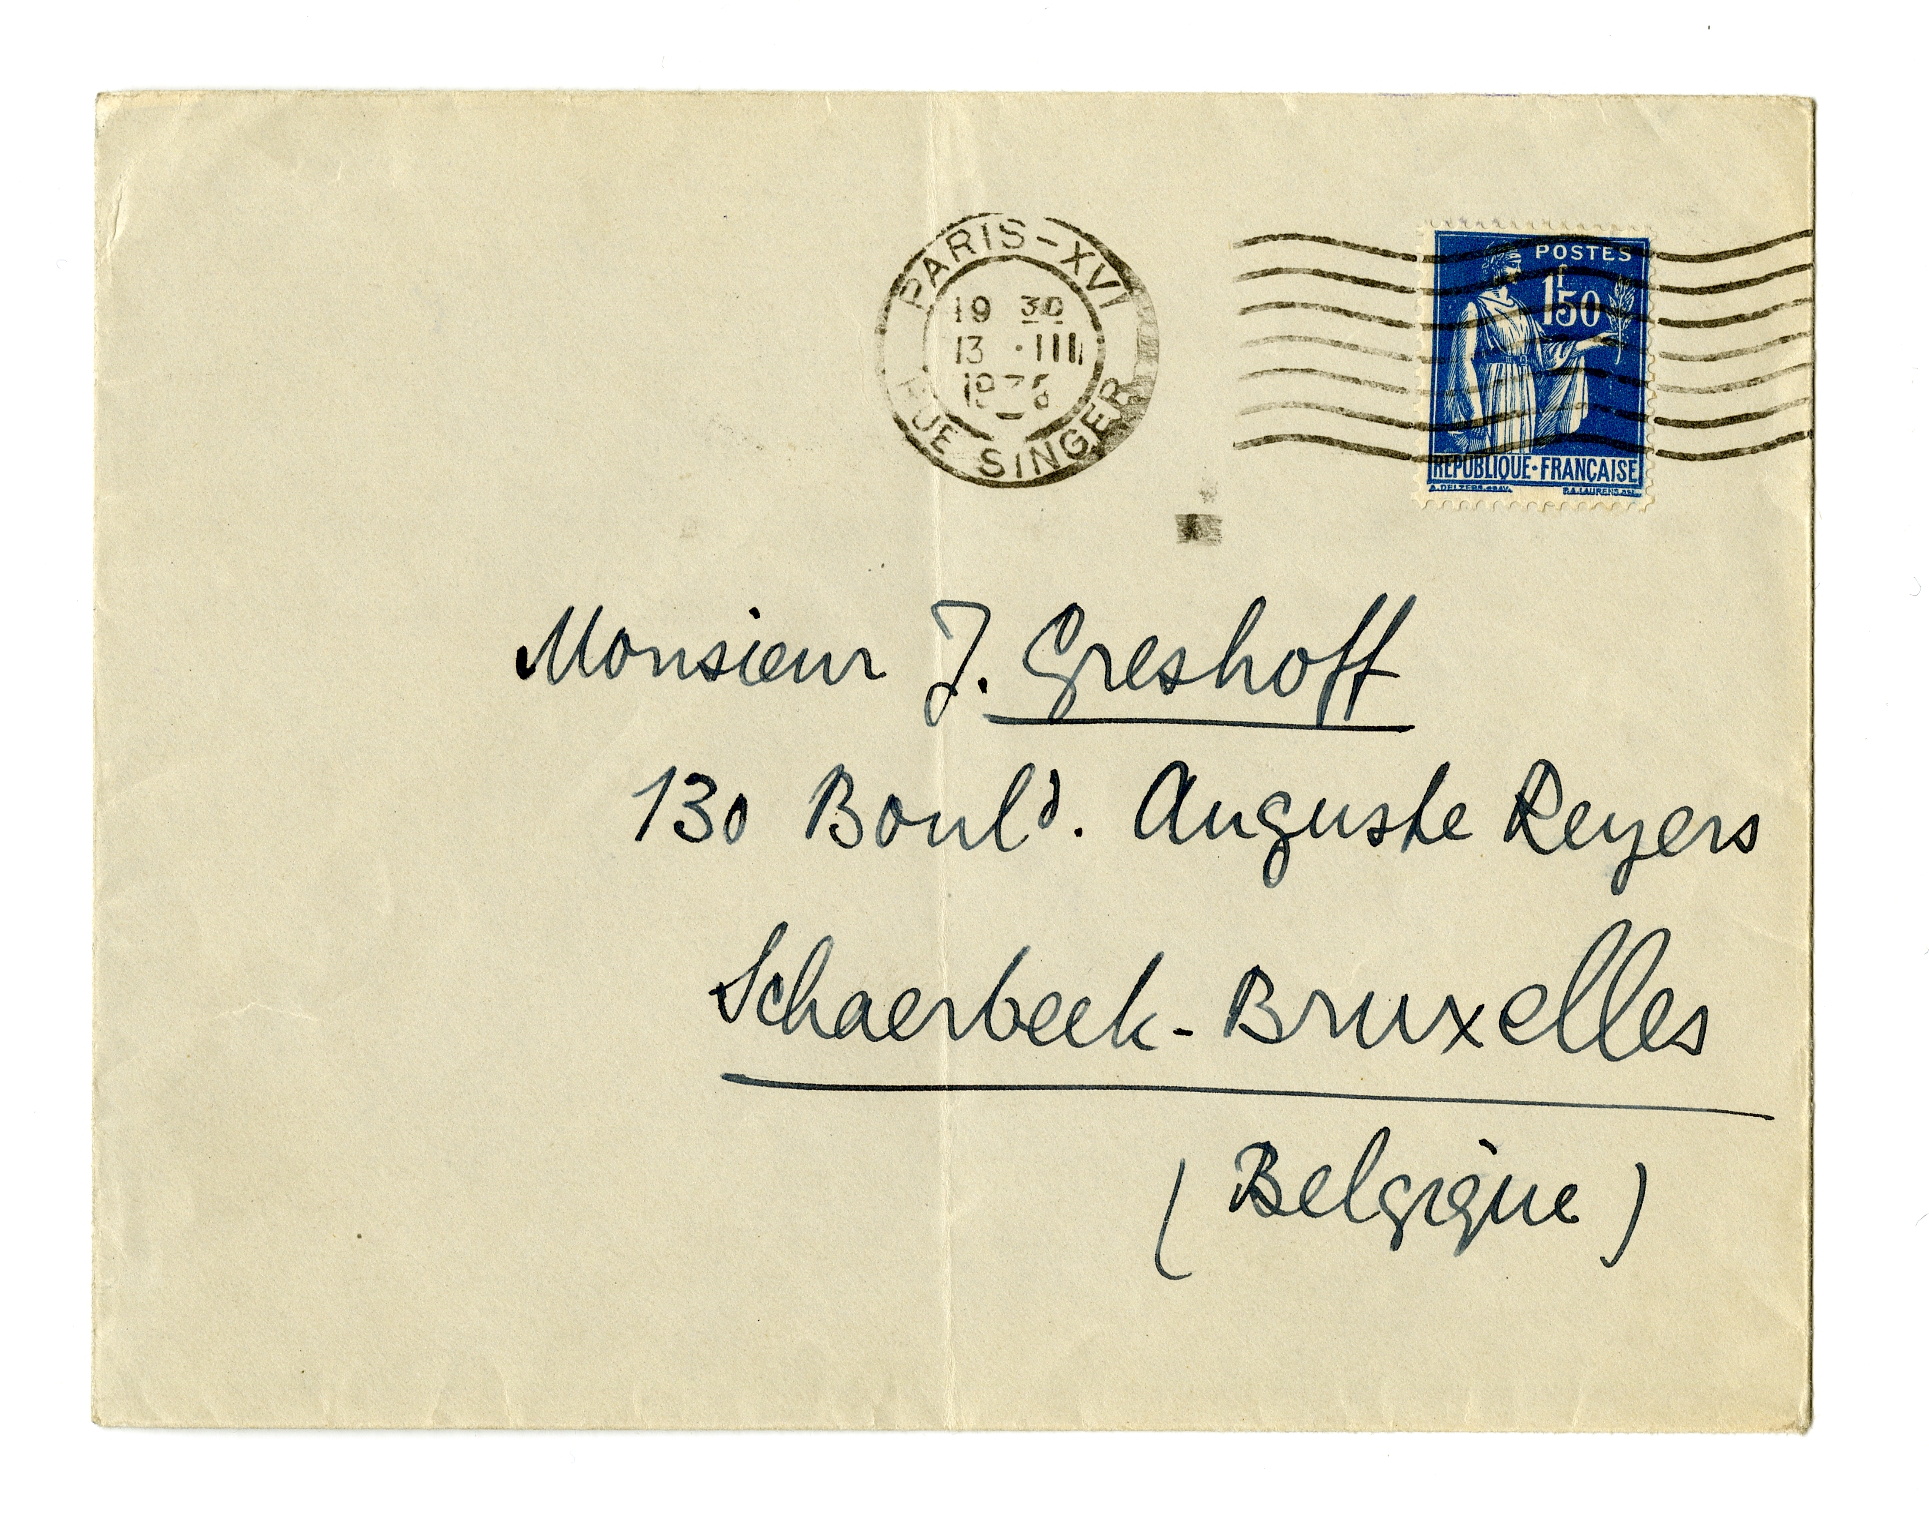 PARIS-XVI
19 30
13 · III
RUE SINGER
POSTES
1f50
REPUBLIQUE·FRANCAISE
Monsieur J. Greshoff
130 Bould. Auguste Reyers
Schaerbeek-Bruxelles
(Belgique)